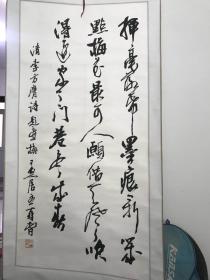 揮毫落紙墨痕新幾
點梅花最可人願借天風吹
得遠家々門巷盡成春
清李方膺詩題畫梅